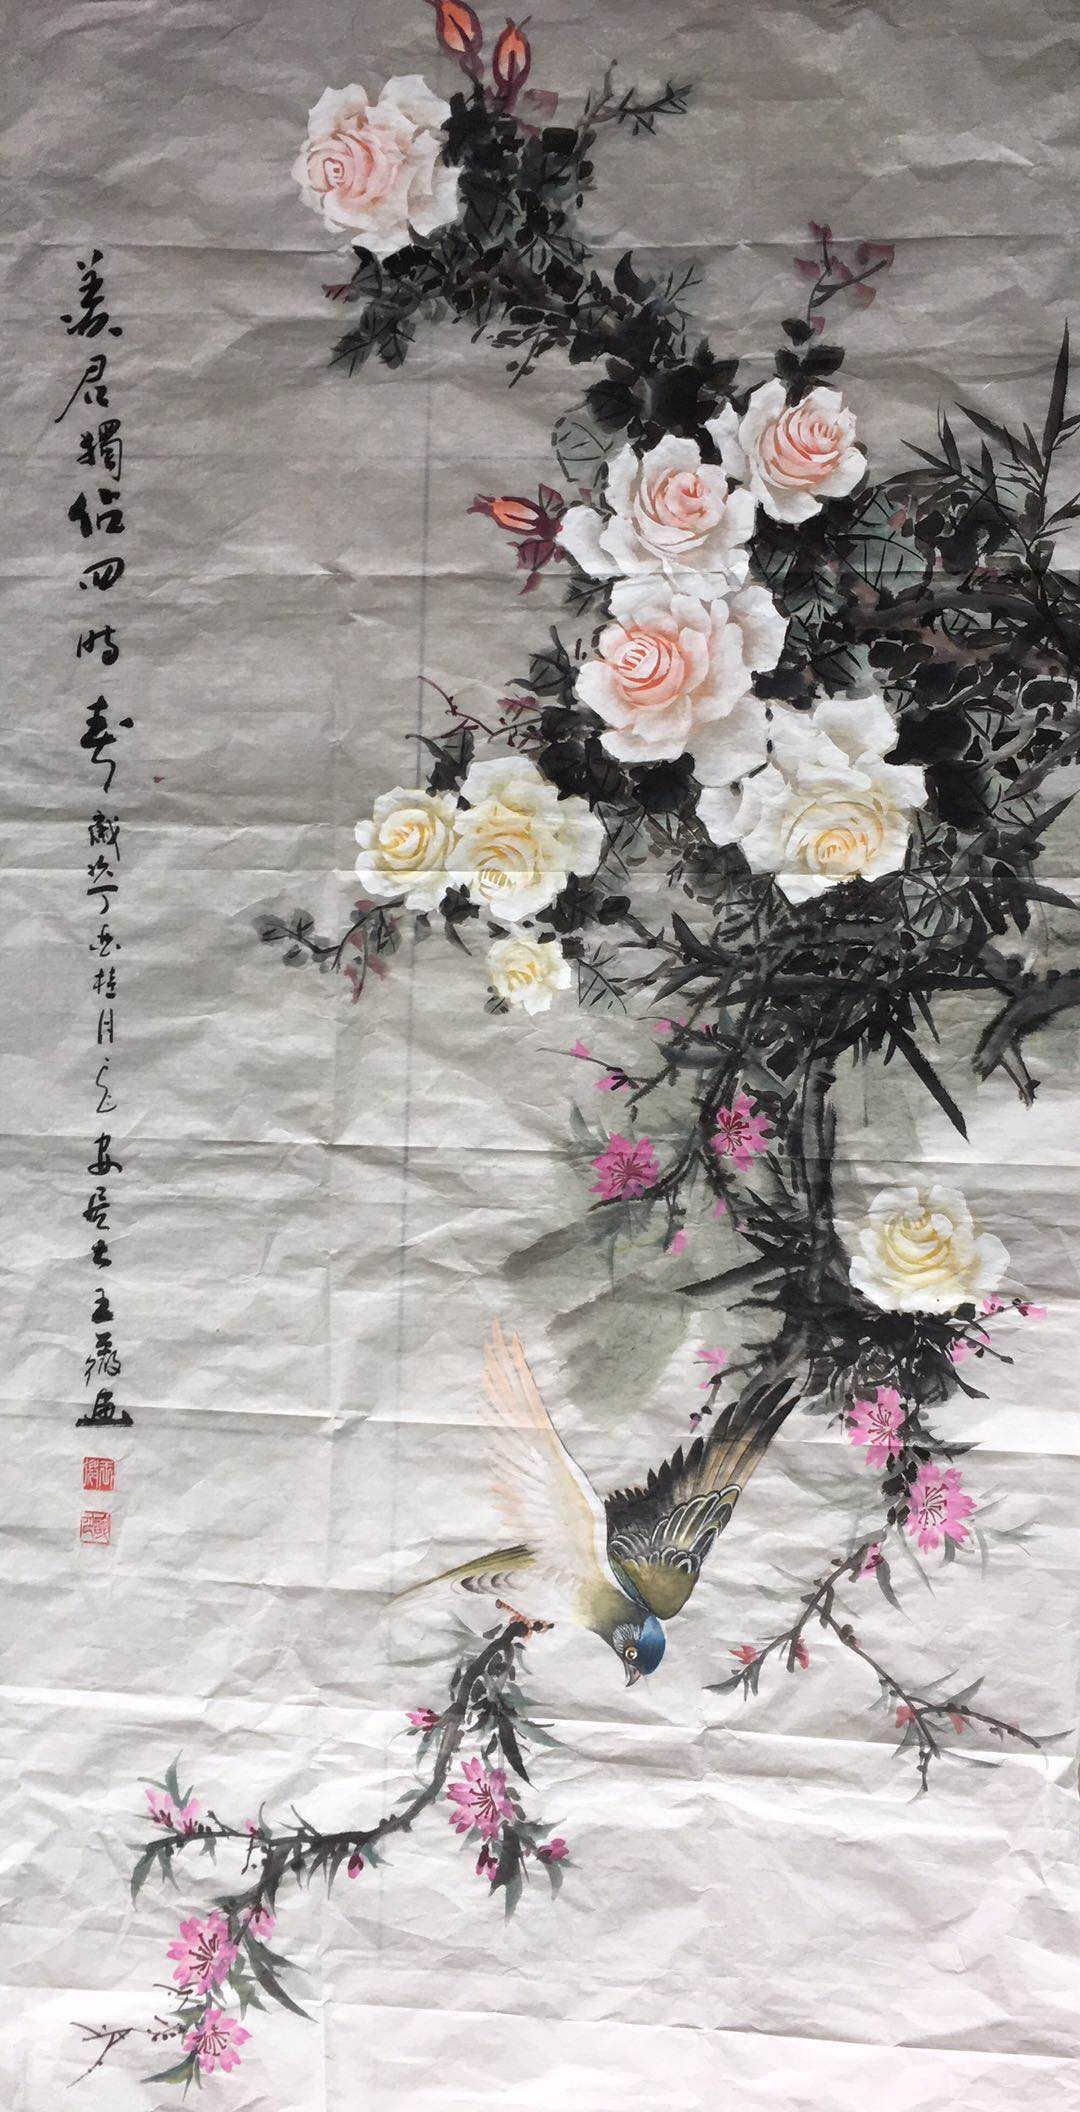 羡君獨佔四時春
歲次丁酉桂月 安居士王薇画